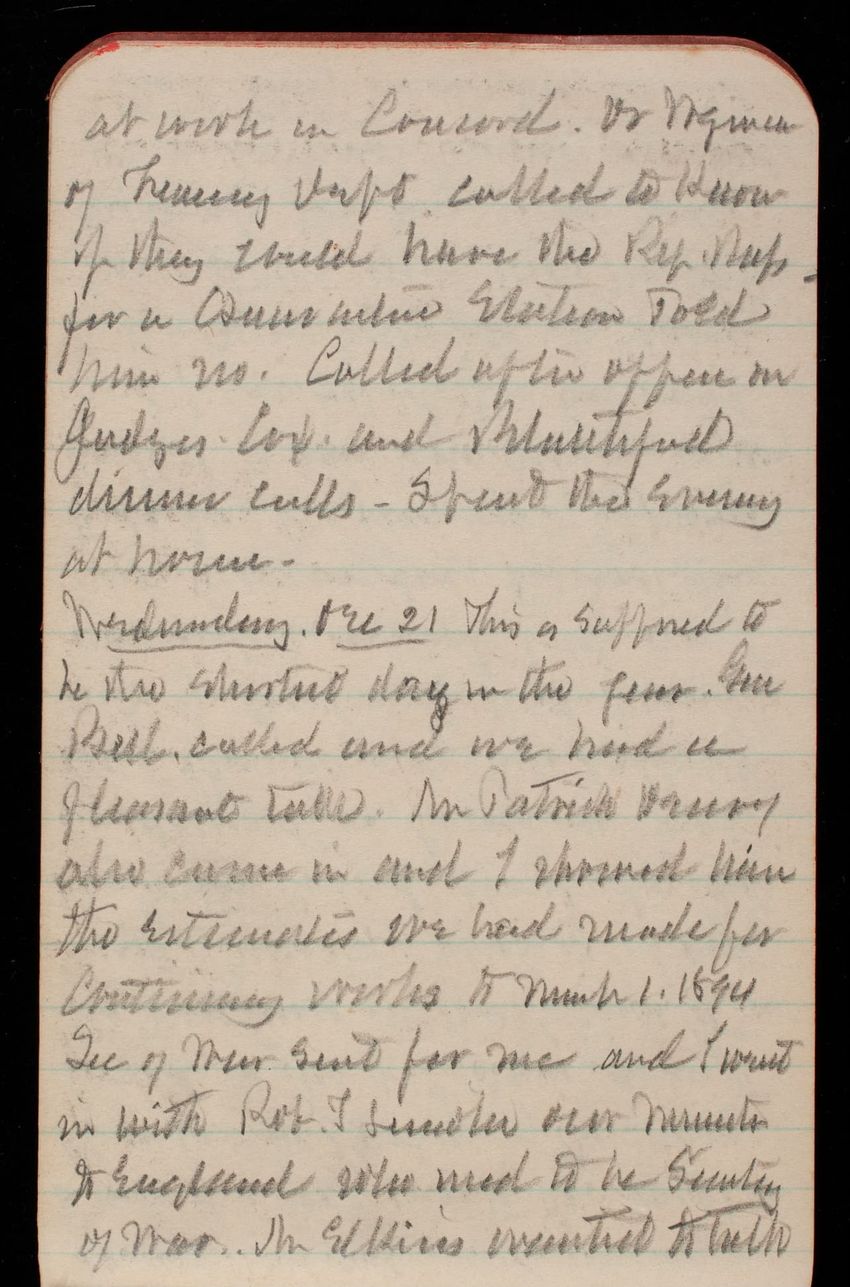 at work in Concord. Dr Wyman
of Treasury Dept called to know
if they could have the Rip Raps
for a Quarantine Station Told
him no. Called after office on
Judges Cox. and Blatchford
dinner calls - Spent the Evening
at home -
Wednesday. Dec 21 This is supposed to
be the shortest day in the year. Gen
Bell. called and we had a
pleasant talk. Mr Patrick Henry
also came in and I showed him
the estimates we had made for
Continuing works to March 1. 1894
Sec of War sent for me and I went
in with Rob. T Lincoln our Minister
to England who used to be Secretary
of War.. Mr Elkins wanted to talk